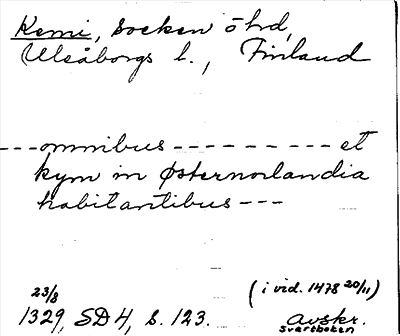 Kemi, socken ö hd,
Uleåborgs l., Finland
---omnibus --------- et
kym in Østernorlandia
habitantibus ---
23/8 (i vid. 1478 20/11)
1329, SD 4, s. 123. Avskr.
Svartboken